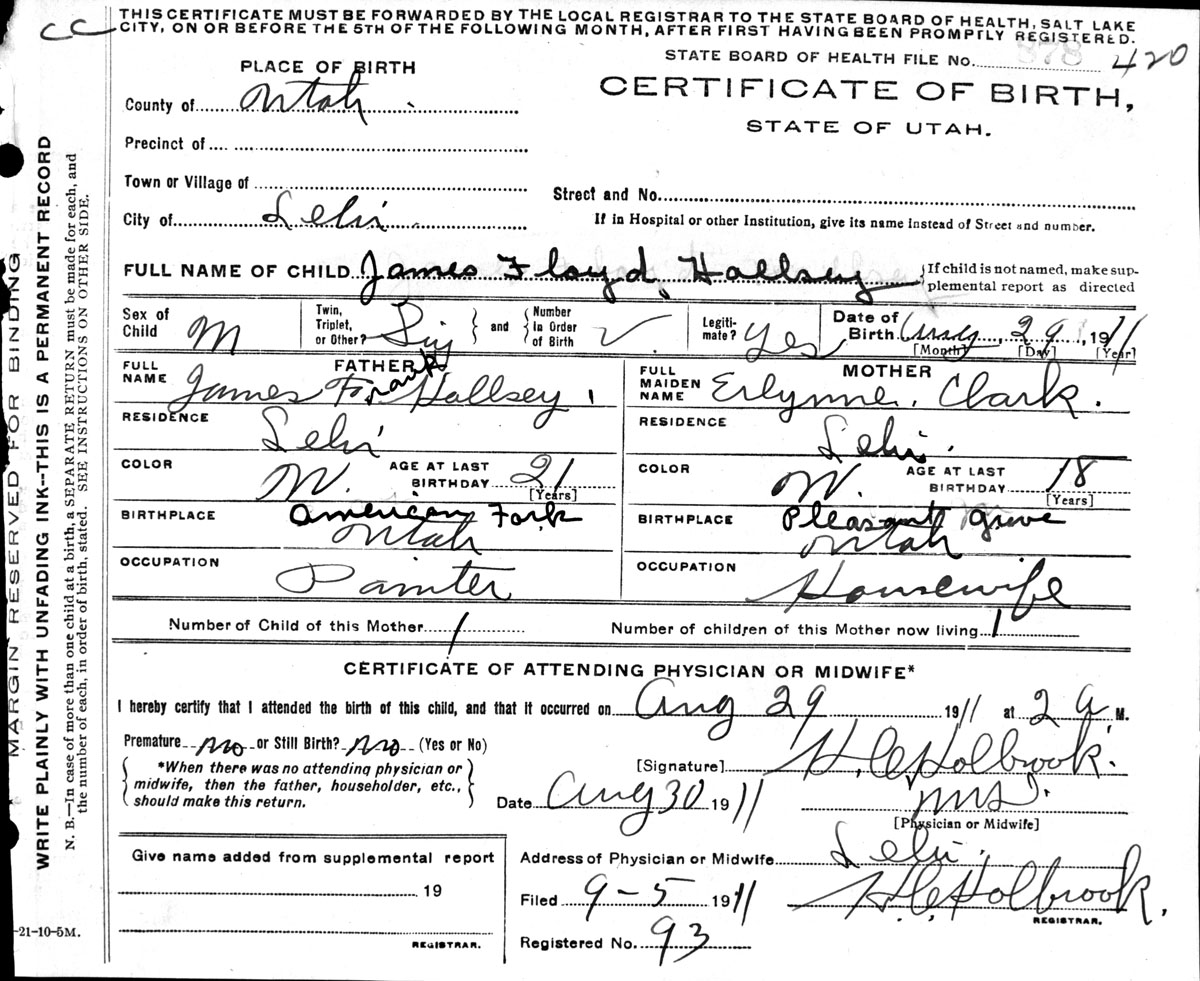 THIS CERTIFICATE MUST BE FORWARDED BY THE LOCAL REGISTRAR TO THE STATE BOARD OF HEALTH, SALT LAKE
CITY, ON OR BEFORE THE 5TH OF THE FOLLOWING MONTH, AFTER FIRST HAVING BEEN PROMPTLY REGISTERED.
CC
STATE BOARD OF HEALTH FILE No. 378 420
PLACE OF BIRTH
CERTIFICATE OF BIRTH,
County of Utah
STATE OF UTAH.
Precinct of
Town or Village of
Street and No.
City of Lehi
If in Hospital or other Institution, give its name instead of Street and number.
FULL NAME OF CHILD James Floyd Hallsey {If child is not named, make sup-
plemental report as directed
Sex of Child M Twin, Triplet, or Other? Sing } and { Number In Order of Birth Legiti- mate? Yes Date of Birth Aug 29, 1911
[Month] [Day] [Year]
FATHER MOTHER
FULL NAME James Frank Hallsey FULL MAIDEN NAME Erlynne Clark.
RESIDENCE Lehi RESIDENCE Lehi.
COLOR W. AGE AT LAST BIRTHDAY 21 [Years] COLOR W. AGE AT LAST BIRTHDAY 18 [Years]
BIRTHPLACE American Fork Utah BIRTHPLACE Pleasant Grove Utah
OCCUPATION Painter OCCUPATION Housewife
Number of Child of this Mother 1 Number of children of this Mother now living 1
CERTIFICATE OF ATTENDING PHYSICIAN OR MIDWIFE*
I hereby certify that I attended the birth of this child, and that it occurred on Aug 29 1911 at 2 a M.
Premature no or Still Birth? no (Yes or No)
[Signature] H. C. Holbrook.
{ *When there was no attending physician or
midwife, then the father, householder, etc.,
should make this return. }
Date Aug 30 1911
[Physician or Midwife]
Give name added from supplemental report
Address of Physician or Midwife Lehi.
19
Filed 9-5 1911 H. C. Holbrook,
REGISTRAR.
REGISTRAR.
Registered No. 93
-21-10-5M.
MARGIN RESERVED FOR BINDING
WRITE PLAINLY WITH UNFADING INK--THIS IS A PERMANENT RECORD
N. B.—In case of more than one child at a birth, a SEPARATE RETURN must be made for each, and
the number of each, in order of birth, stated. SEE INSTRUCTIONS ON OTHER SIDE.